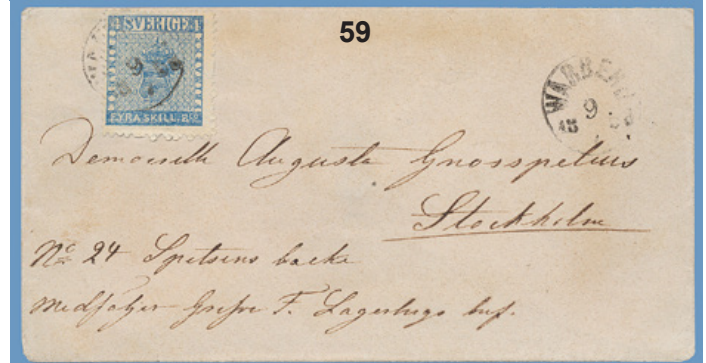 59
4 SVERIGE 4
FYRA SKILL. Bco
WARBERG
9
Demoiselle Augusta Gnosspelius
Stockholm
No 24 Spetsens backe
medföljer F. Lagerbergs